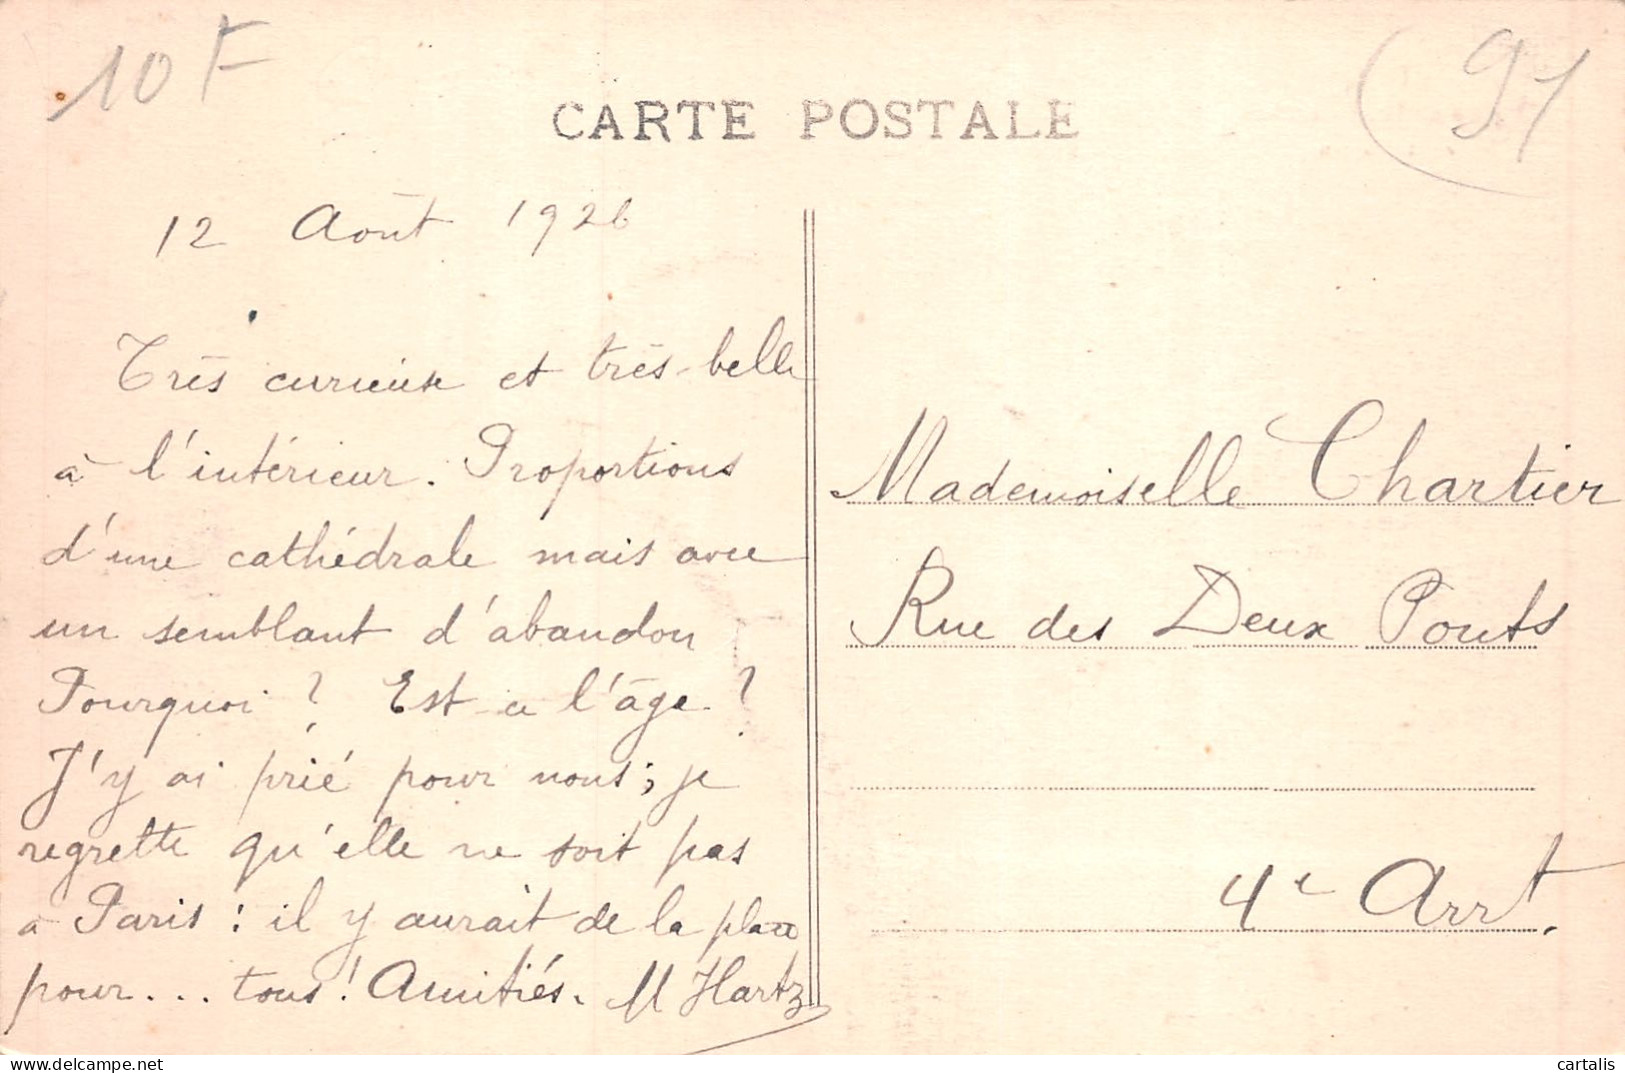 10 F
91
CARTE POSTALE
12 Août 1926
Très curieuse et très belle
à l'intérieur. Proportions
d'une cathédrale mais avec
un semblant d'abandon
Pourquoi ? Est-ce l'âge ?
J'y ai prié pour nous ; je
regrette qu'elle ne soit pas
à Paris : il y aurait de la place
pour... tous ! Amitiés. M Hartz
Mademoiselle Chartier
Rue des Deux Ponts
4e Arrt.
cartalis